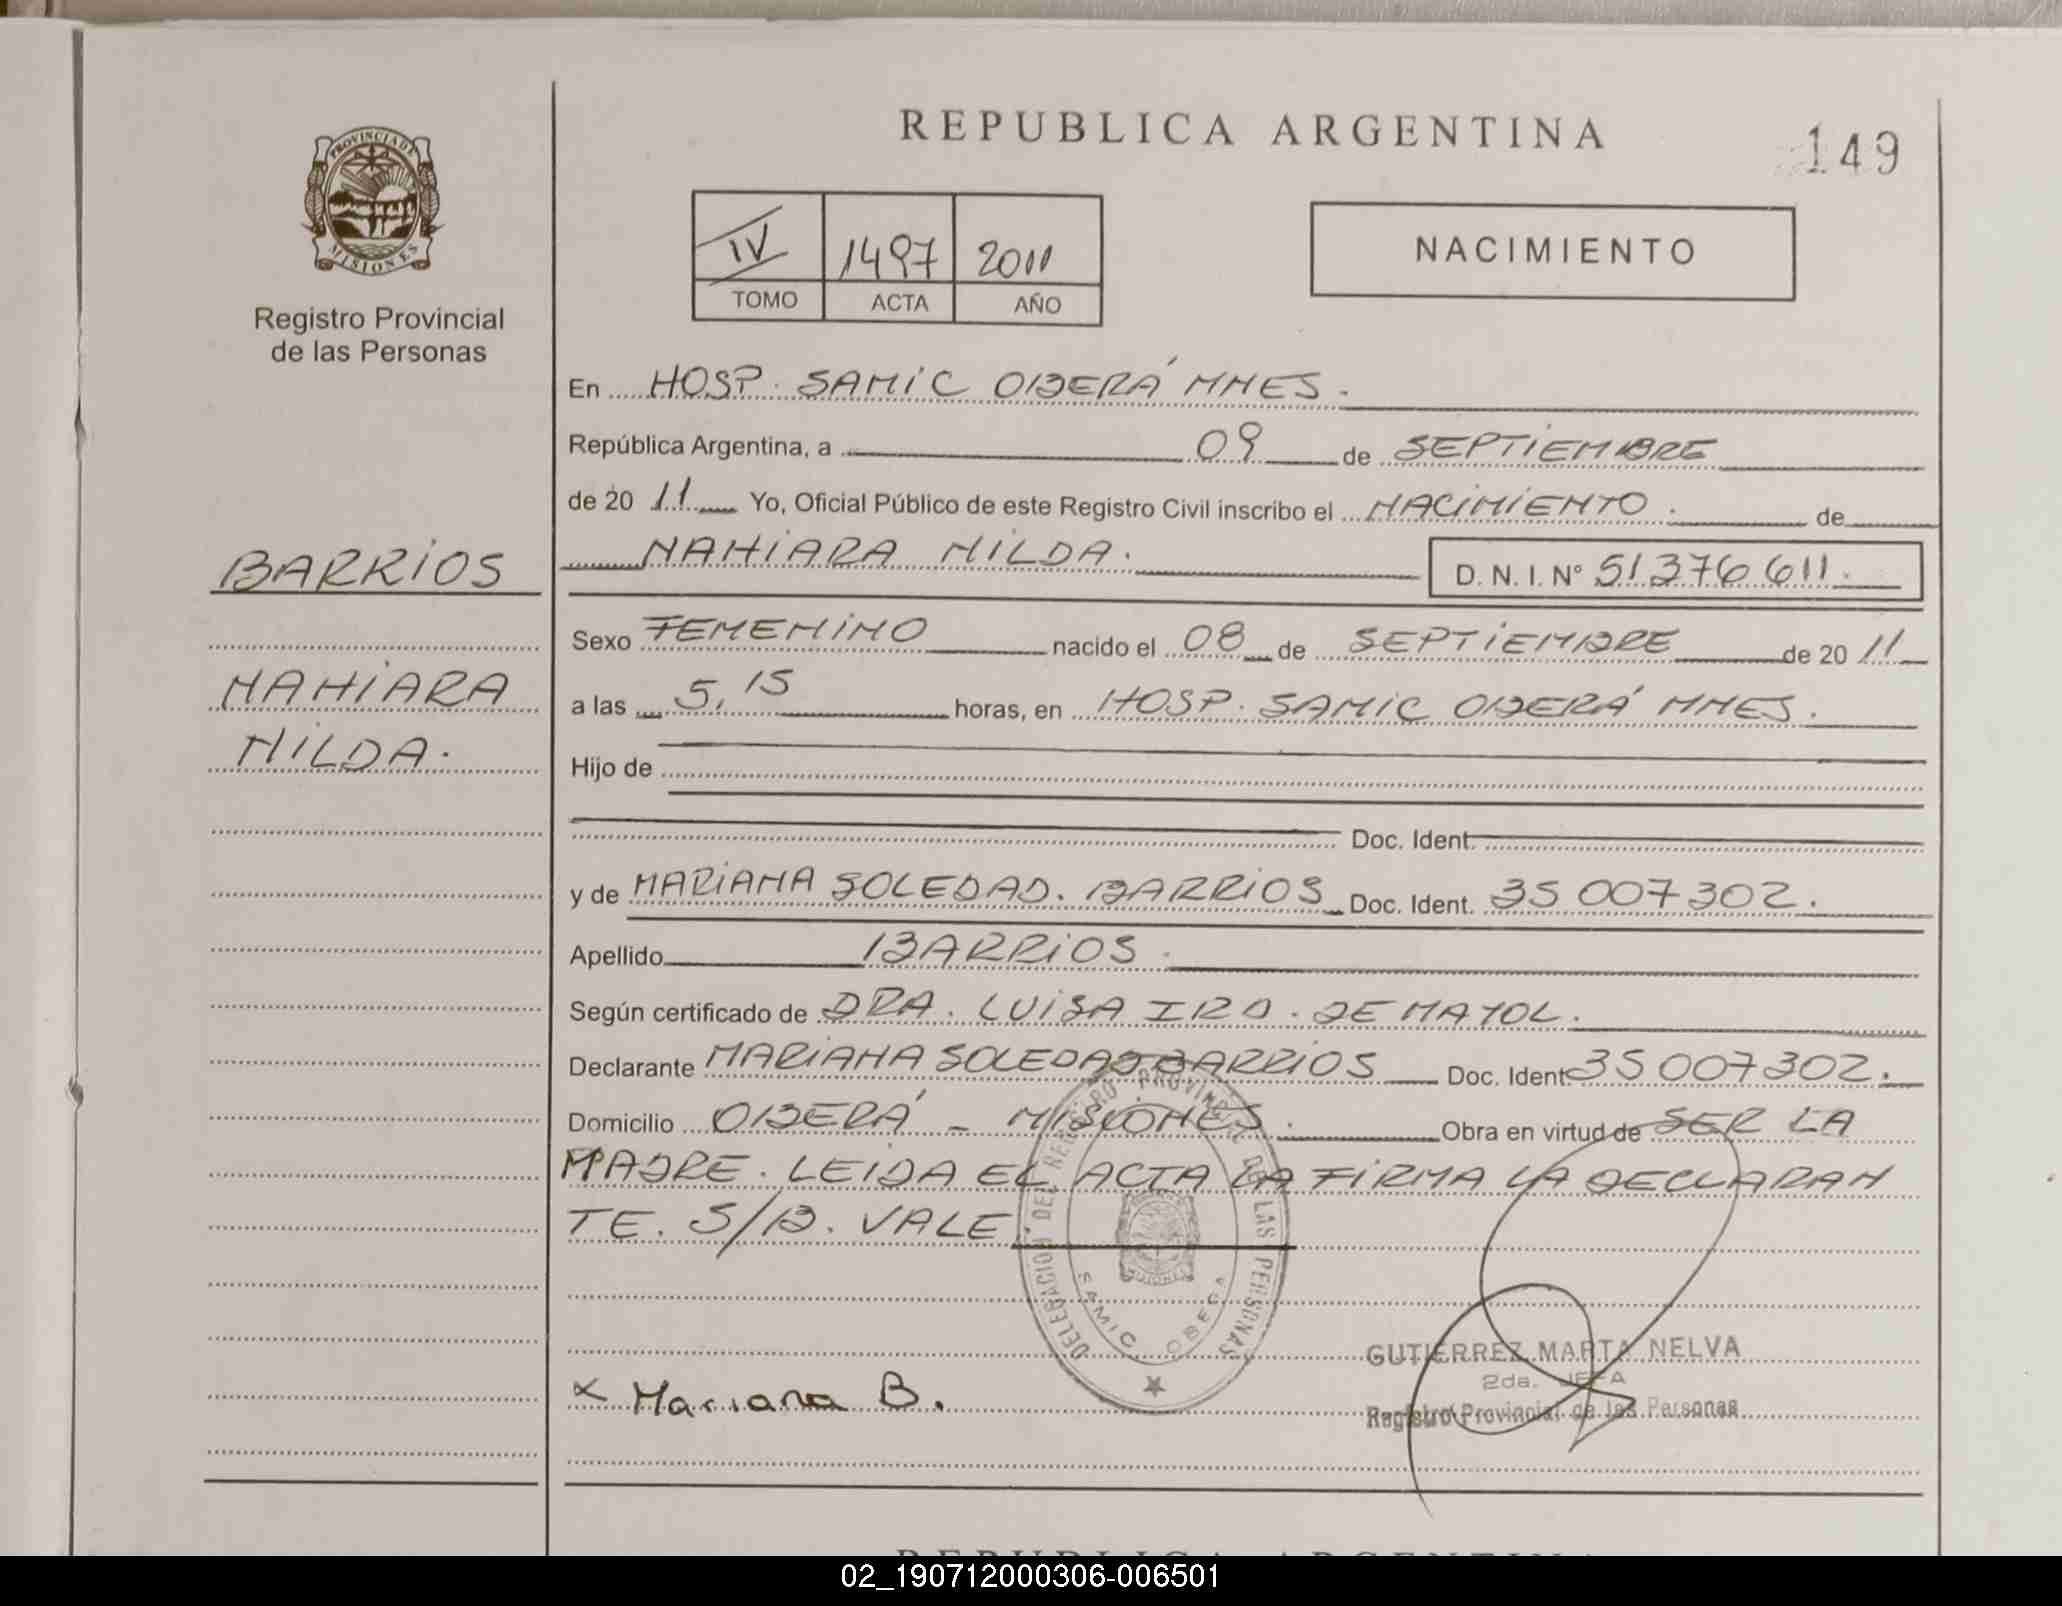 REPUBLICA ARGENTINA
149
PROVINCIA DE
MISIONES
Registro Provincial
de las Personas
IV 1497 2011
TOMO ACTA AÑO
NACIMIENTO
En HOSP. SAMIC OBERÁ MNES.
República Argentina, a 09 de SEPTIEMBRE
de 20 11 Yo, Oficial Público de este Registro Civil inscribo el NACIMIENTO. de
NAHIARA NILDA. D. N. I. N° 51376611.
BARRIOS
NAHIARA
NILDA.
Sexo FEMENINO nacido el 08 de SEPTIEMBRE de 20 11
a las 5,15 horas, en HOSP. SAMIC OBERÁ MNES.
Hijo de
Doc. Ident.
y de MARIANA SOLEDAD. BARRIOS Doc. Ident. 35 007 302.
Apellido BARRIOS.
Según certificado de DRA. LUISA IRO. DE MAYOL.
Declarante MARIANA SOLEDAD BARRIOS Doc. Ident 35 007 302.
Domicilio OBERÁ - MISIONES. Obra en virtud de SER LA
MADRE. LEIDA EL ACTA LA FIRMA LA DECLARAN
TE. S/B. VALE
DELEGACION DEL REGISTRO PROVINCIAL DE LAS PERSONAS
SAMIC OBERA
x Mariana B.
GUTIERREZ MARTA NELVA
2da. JEFA
Registro Provincial de las Personas
REPUBLICA ARGENTINA
02_190712000306-006501